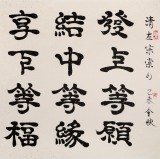 清左宗棠句 未金秋
發上等願
結中等緣
享下等福